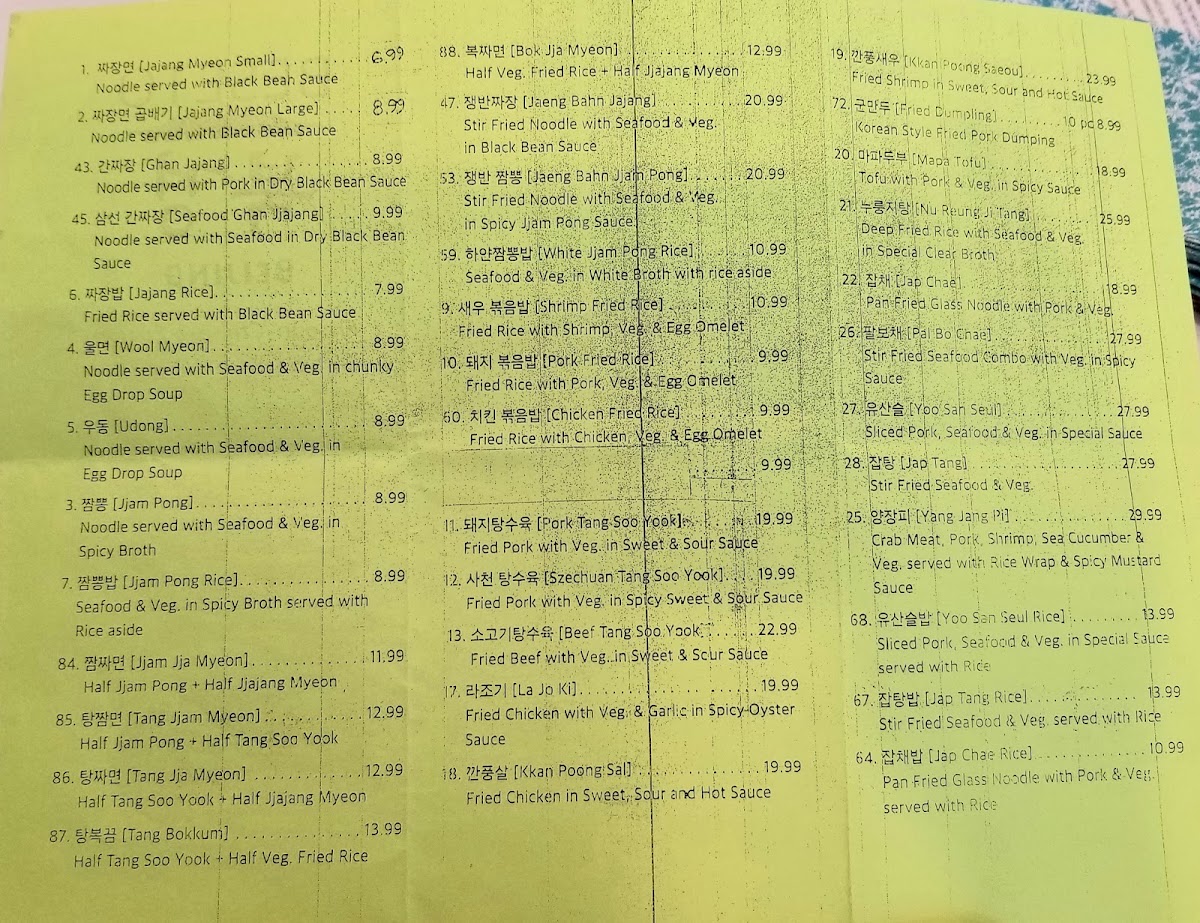 1. 짜장면 [Jajang Myeon Small]. . . . . . . . . . . . 6.99
Noodle served with Black Bean Sauce
2. 짜장면 곱배기 [Jajang Myeon Large] . . . . . . 8.99
Noodle served with Black Bean Sauce
43. 간짜장 [Ghan Jajang] . . . . . . . . . . . . . . . . . 8.99
Noodle served with Pork in Dry Black Bean Sauce
45. 삼선 간짜장 [Seafood Ghan Jjajang] . . . . . 9.99
Noodle served with Seafood in Dry Black Bean
Sauce
6. 짜장밥 [Jajang Rice]. . . . . . . . . . . . . . . . . . 7.99
Fried Rice served with Black Bean Sauce
4. 울면 [Wool Myeon] . . . . . . . . . . . . . . . . . . 8.99
Noodle served with Seafood & Veg. in chunky
Egg Drop Soup
5. 우동 [Udong] . . . . . . . . . . . . . . . . . . . . . . 8.99
Noodle served with Seafood & Veg. in
Egg Drop Soup
3. 짬뽕 [Jjam Pong] . . . . . . . . . . . . . . . . . . . 8.99
Noodle served with Seafood & Veg. in
Spicy Broth
7. 짬뽕밥 [Jjam Pong Rice]. . . . . . . . . . . . . . . 8.99
Seafood & Veg. in Spicy Broth served with
Rice aside
84. 짬짜면 [Jjam Jja Myeon] . . . . . . . . . . . . . 11.99
Half Jjam Pong + Half Jjajang Myeon
85. 탕짬면 [Tang Jjam Myeon] . . . . . . . . . . . . 12.99
Half Jjam Pong + Half Tang Soo Yook
86. 탕짜면 [Tang Jja Myeon] . . . . . . . . . . . . . 12.99
Half Tang Soo Yook + Half Jjajang Myeon
87. 탕복끔 [Tang Bokkum] . . . . . . . . . . . . . . . 13.99
Half Tang Soo Yook + Half Veg. Fried Rice
88. 복짜면 [Bok Jja Myeon] . . . . . . . . . . . . . . 12.99
Half Veg. Fried Rice + Half Jjajang Myeon
47. 쟁반짜장 [Jaeng Bahn Jajang] . . . . . . . . . 20.99
Stir Fried Noodle with Seafood & Veg.
in Black Bean Sauce
53. 쟁반 짬뽕 [Jaeng Bahn Jjam Pong] . . . . . . 20.99
Stir Fried Noodle with Seafood & Veg.
in Spicy Jjam Pong Sauce
59. 하얀짬뽕밥 [White Jjam Pong Rice] . . . . . . 10.99
Seafood & Veg. in White Broth with rice aside
9. 새우 볶음밥 [Shrimp Fried Rice] . . . . . . . . . 10.99
Fried Rice with Shrimp, Veg. & Egg Omelet
10. 돼지 볶음밥 [Pork Fried Rice] . . . . . . . . . . 9.99
Fried Rice with Pork, Veg. & Egg Omelet
60. 치킨 볶음밥 [Chicken Fried Rice] . . . . . . . . 9.99
Fried Rice with Chicken, Veg. & Egg Omelet
9.99
11. 돼지탕수육 [Pork Tang Soo Yook] . . . . . . . 19.99
Fried Pork with Veg. in Sweet & Sour Sauce
12. 사천 탕수육 [Szechuan Tang Soo Yook]. . . . 19.99
Fried Pork with Veg. in Spicy Sweet & Sour Sauce
13. 소고기탕수육 [Beef Tang Soo Yook] . . . . . 22.99
Fried Beef with Veg. in Sweet & Sour Sauce
17. 라조기 [La Jo Ki] . . . . . . . . . . . . . . . . . . 19.99
Fried Chicken with Veg. & Garlic in Spicy Oyster
Sauce
18. 깐풍살 [Kkan Poong Sal] . . . . . . . . . . . . . 19.99
Fried Chicken in Sweet, Sour and Hot Sauce
19. 깐풍새우 [Kkan Poong Saeou] . . . . . . . . . 23.99
Fried Shrimp in Sweet, Sour and Hot Sauce
72. 군만두 [Fried Dumpling] . . . . . . . . . . 10 pc 8.99
Korean Style Fried Pork Dumping
20. 마파두부 [Mapa Tofu] . . . . . . . . . . . . . . . 18.99
Tofu with Pork & Veg. in Spicy Sauce
21. 누룽지탕 [Nu Reung Ji Tang] . . . . . . . . . . 25.99
Deep Fried Rice with Seafood & Veg.
in Special Clear Broth
22. 잡채 [Jap Chae] . . . . . . . . . . . . . . . . . . . 18.99
Pan Fried Glass Noodle with Pork & Veg.
26. 팔보채 [Pal Bo Chae] . . . . . . . . . . . . . . . 27.99
Stir Fried Seafood Combo with Veg. in Spicy
Sauce
27. 유산슬 [Yoo San Seul] . . . . . . . . . . . . . . . 27.99
Sliced Pork, Seafood & Veg. in Special Sauce
28. 잡탕 [Jap Tang] . . . . . . . . . . . . . . . . . . . 27.99
Stir Fried Seafood & Veg.
25. 양장피 [Yang Jang Pi] . . . . . . . . . . . . . . . 29.99
Crab Meat, Pork, Shrimp, Sea Cucumber &
Veg. served with Rice Wrap & Spicy Mustard
Sauce
68. 유산슬밥 [Yoo San Seul Rice] . . . . . . . . . . 13.99
Sliced Pork, Seafood & Veg. in Special Sauce
served with Rice
67. 잡탕밥 [Jap Tang Rice] . . . . . . . . . . . . . . 13.99
Stir Fried Seafood & Veg. served with Rice
64. 잡채밥 [Jap Chae Rice] . . . . . . . . . . . . . . 10.99
Pan Fried Glass Noodle with Pork & Veg.
served with Rice